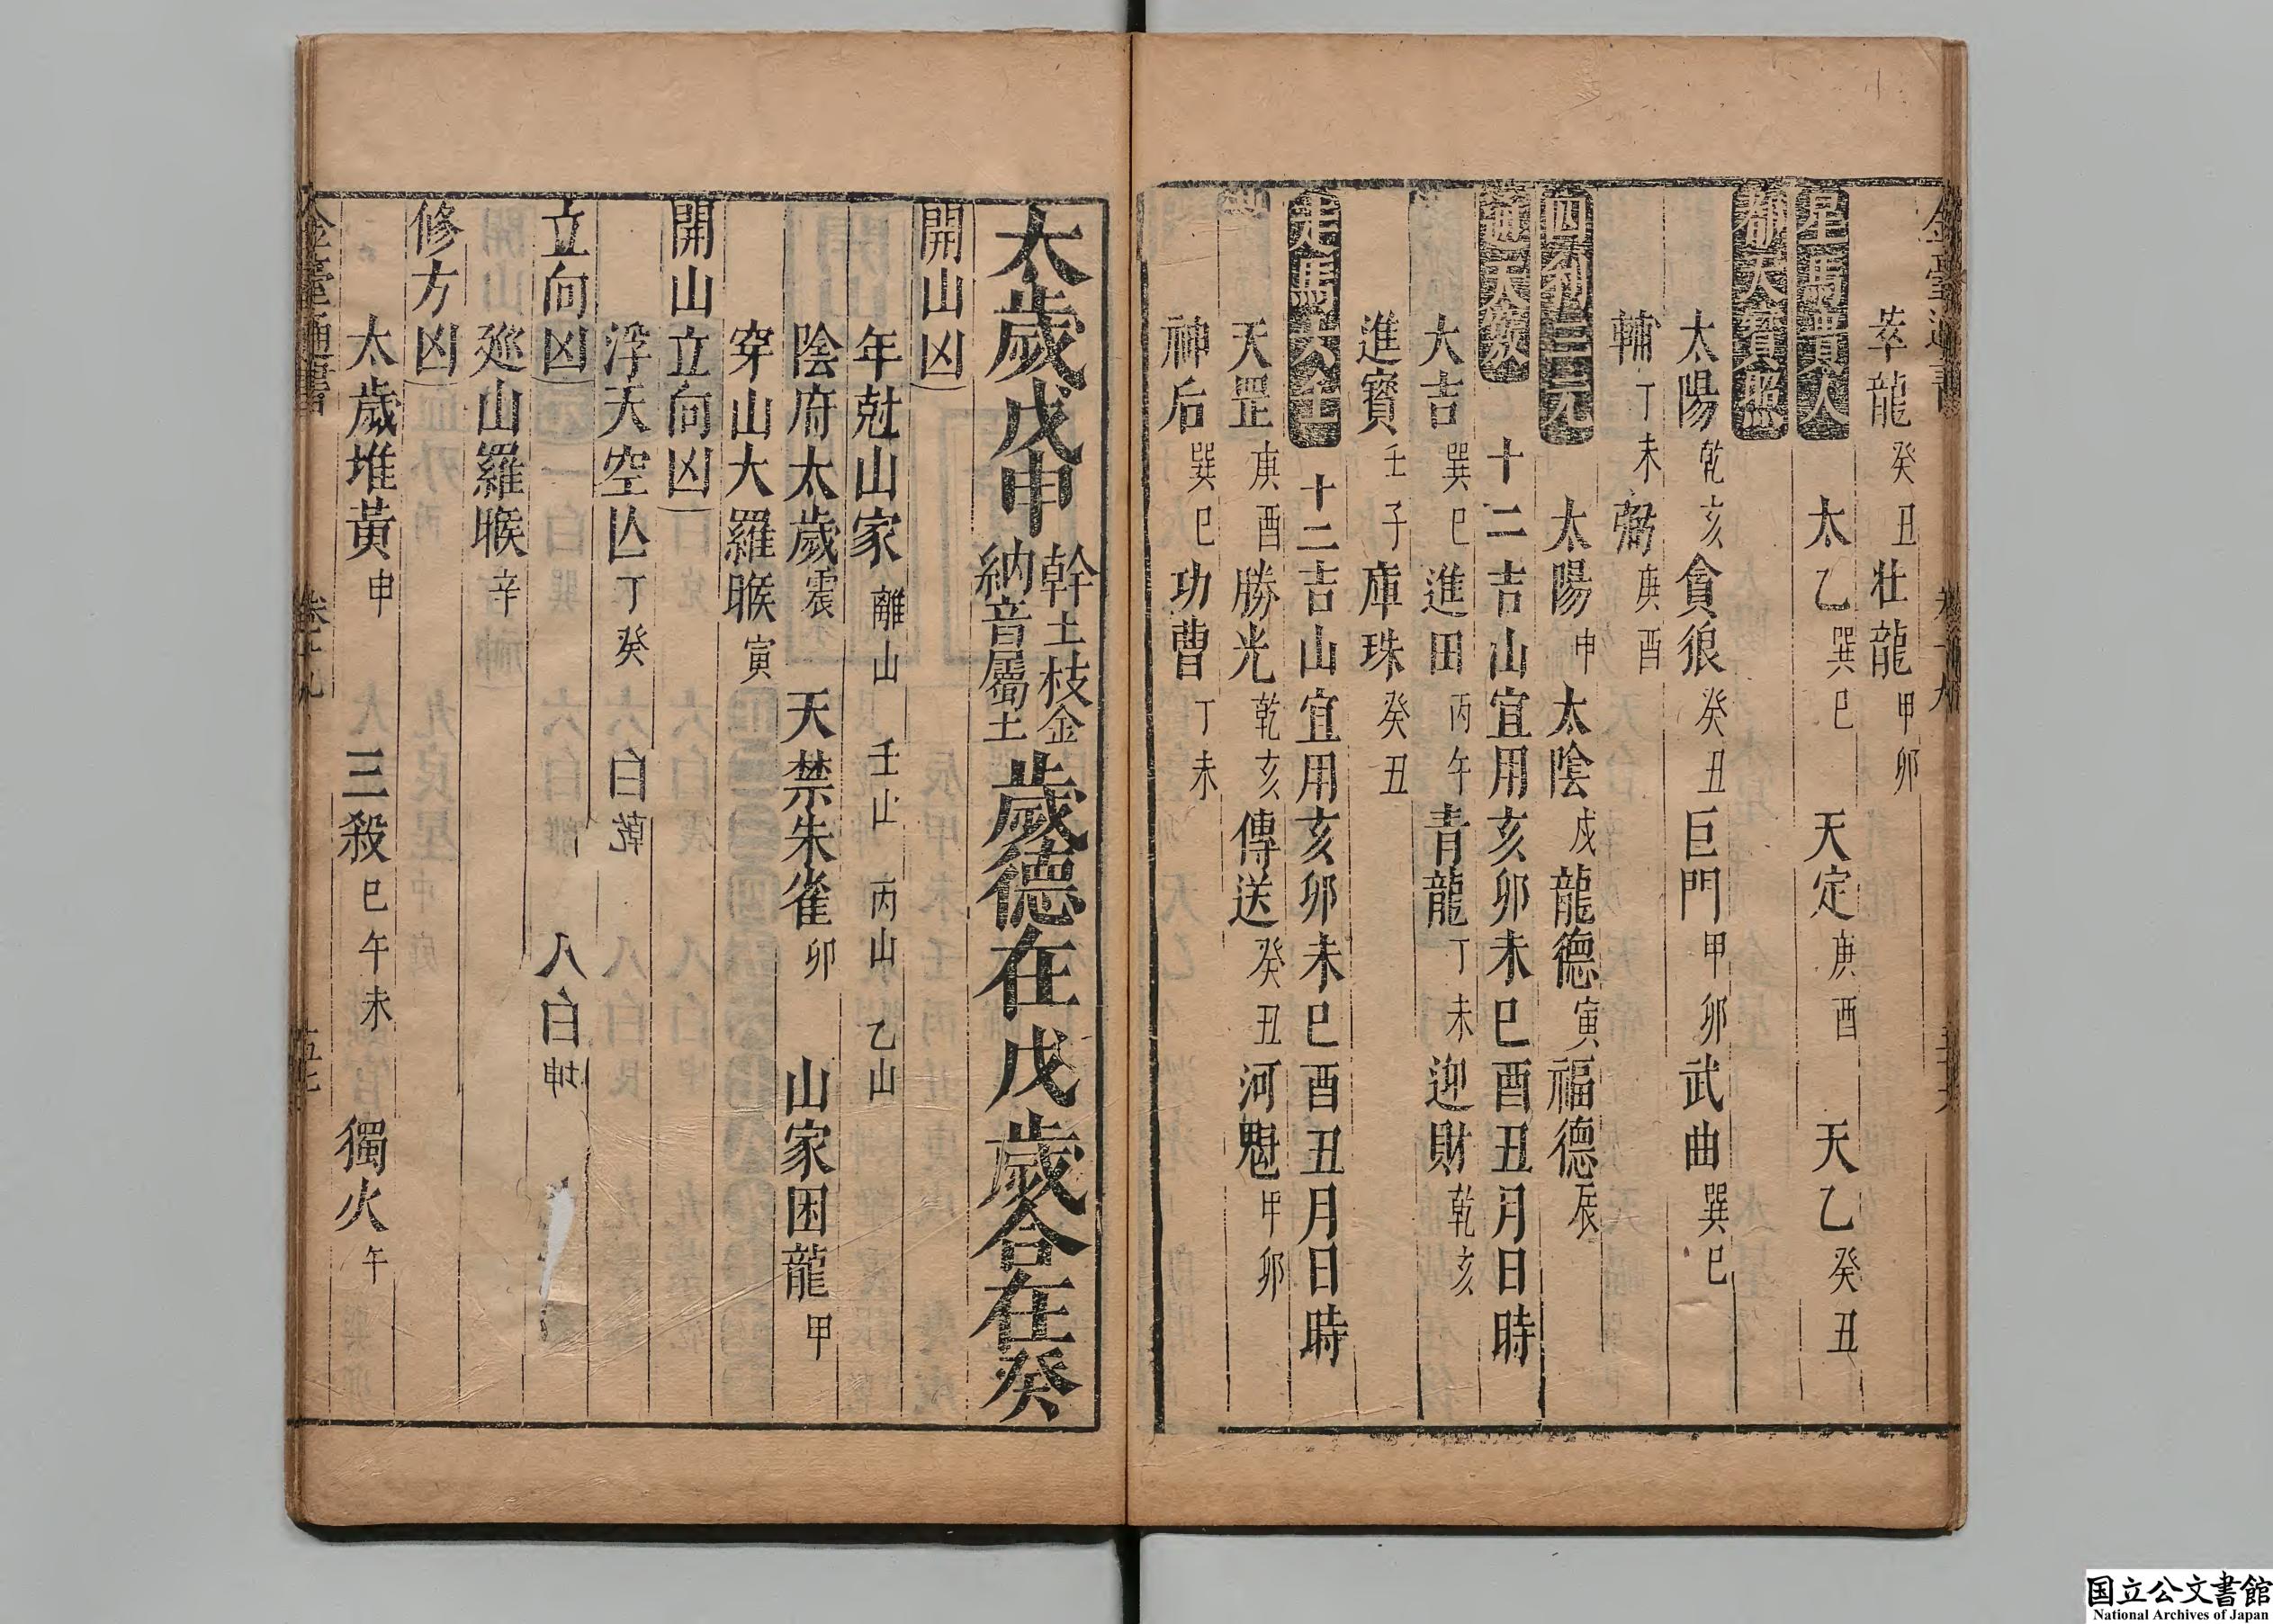 萃龍 癸丑 壮龍 甲卯
星馬貴人 太乙 巽巳 天定 庚酉 天乙 癸丑
都天寶照
太陽 乾亥 貪狼 癸丑 巨門 甲卯 武曲 巽巳
輔 丁未 弼 庚酉
四利三元 太陽 申 太陰 戍 龍德 寅 福德 辰
通天竅 十二吉山宜用亥卯未巳酉丑月日時
大吉 巽巳 進田 丙午 青龍 丁未 迎財 乾亥
進寶 壬子 庫珠 癸丑
走馬六壬 十二吉山宜用亥卯未巳酉丑月日時
天罡 庚酉 勝光 乾亥 傳送 癸丑 河魁 甲卯
神后 巽巳 功曹 丁未
太歲戊申 幹土枝金 納音屬土 歲德在戊 歲合在癸
開山凶
年尅山家 離山 壬山 丙山 乙山
陰府太歲 震 天禁朱雀 卯 山家困龍 甲
穿山大羅睺 寅
開山立向凶
浮天空亾 丁癸
立向凶
廵山羅睺 辛
修方凶
太歲堆黃 申 三殺 巳午未 獨火 午
金臺通書
国立公文書館
National Archives of Japan